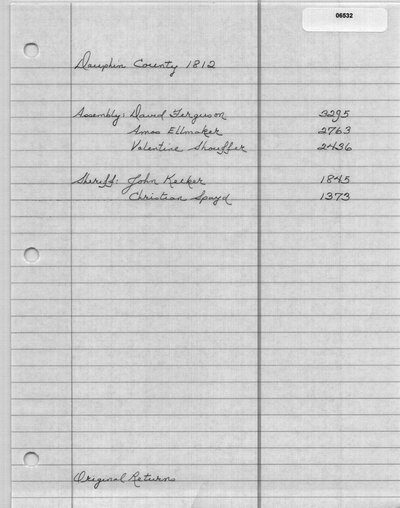 06532
Dauphin County 1812
Assembly: David Ferguson 3295
Amos Ellmaker 2763
Valentine Shouffer 2436
Sheriff: John Keeker 1845
Christian Spayd 1373
Original Returns